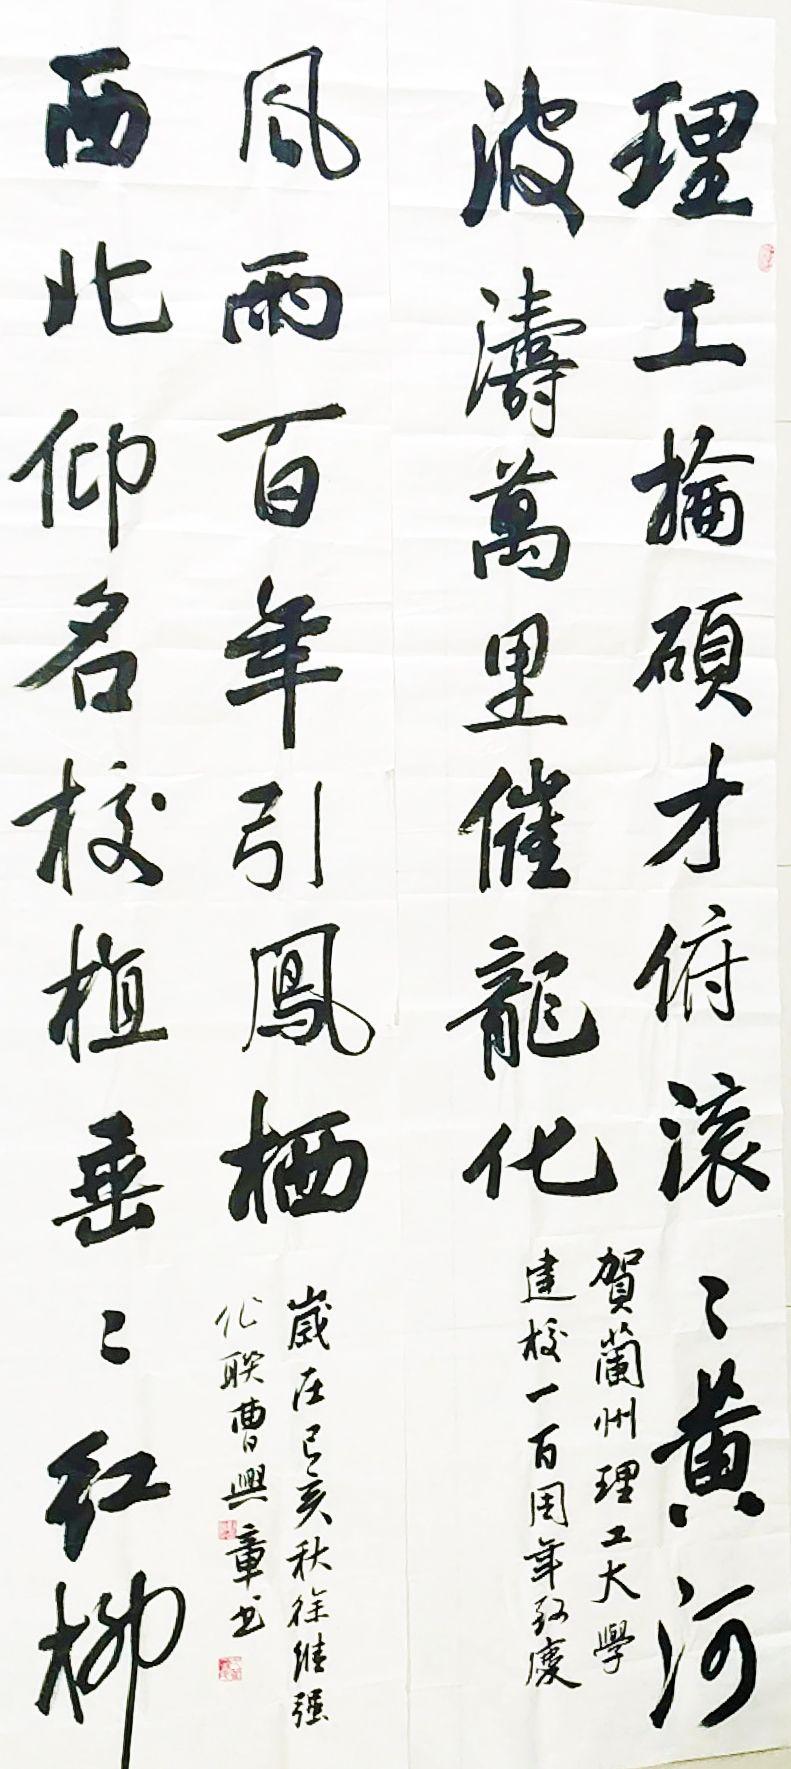 理工掄碩才俯滚〻黄河
波濤萬里催龍化
賀蘭州理工大學
建校一百周年致慶
西北仰名校植垂〻红柳
風雨百年引鳳栖
歲在己亥秋徐维强
作联曹興章书